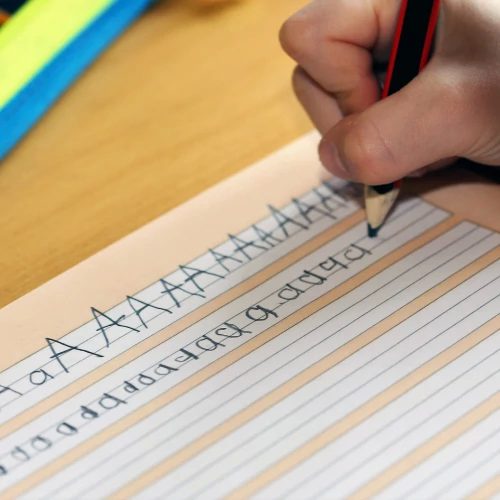 A a A A A A A A A A A A A A
a a a a a a a a a a a a a a a a a